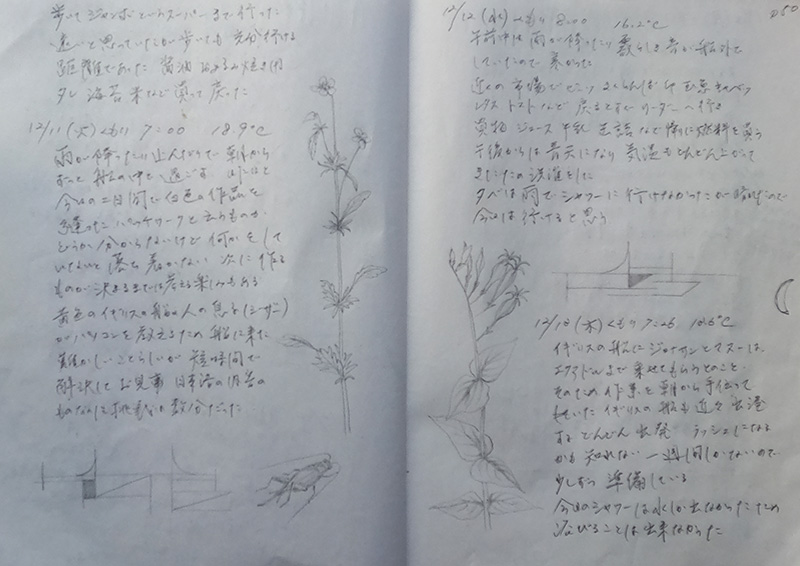 歩いてジャンボというスーパーまで行った
遠いと思っていたが歩いても充分行ける
距離であった 醤油
タレ 海苔 米など買って戻った
12/11(火)くもり 7:00 18.9℃
雨が降ったり止んだりで 朝から
ずっと船の中で過ごす
今日の二日間で白色の作品を
縫った パッチワークと云うものか
どうか分からないけど 何かをして
いないと落ち着かない 次に作る
ものが決まるまでは考える楽しみもある
黄色のイギリスの船の人の息子(シーザー)
がパソコンを教えるため船に来た
難かしいことらしいが 短時間で
解決して お見事 日本語の
ものなのに 挑戦も 数分だった
12/12(水)くもり 8:00 16.2℃
午前中は雨が降ったり 船外で
していたので 寒かった
近くの市場で さくらんぼ 玉葱 キャベツ
レタス トマトなど 戻るとすぐリーダーへ行き
果物 ジュース 牛乳 など 燃料を買う
午後からは青天になり 気温もどんどん上がって
きたため洗濯をした
夕べは雨でシャワーに行けなかったが 晴れたので
今日は行けると思う
12/13(木)くもり 7:25 18.6℃
イギリスの船にジョナサンとマスーは
まで乗せてもらうとのこと
そのため作業を朝から手伝って
いた イギリスの船も近々出港
する どんどん出発 ラッシュになる
かも知れない 一週間しかないので
少しずつ 準備している
今日のシャワーは水しか出なかったため
浴びることは出来なかった